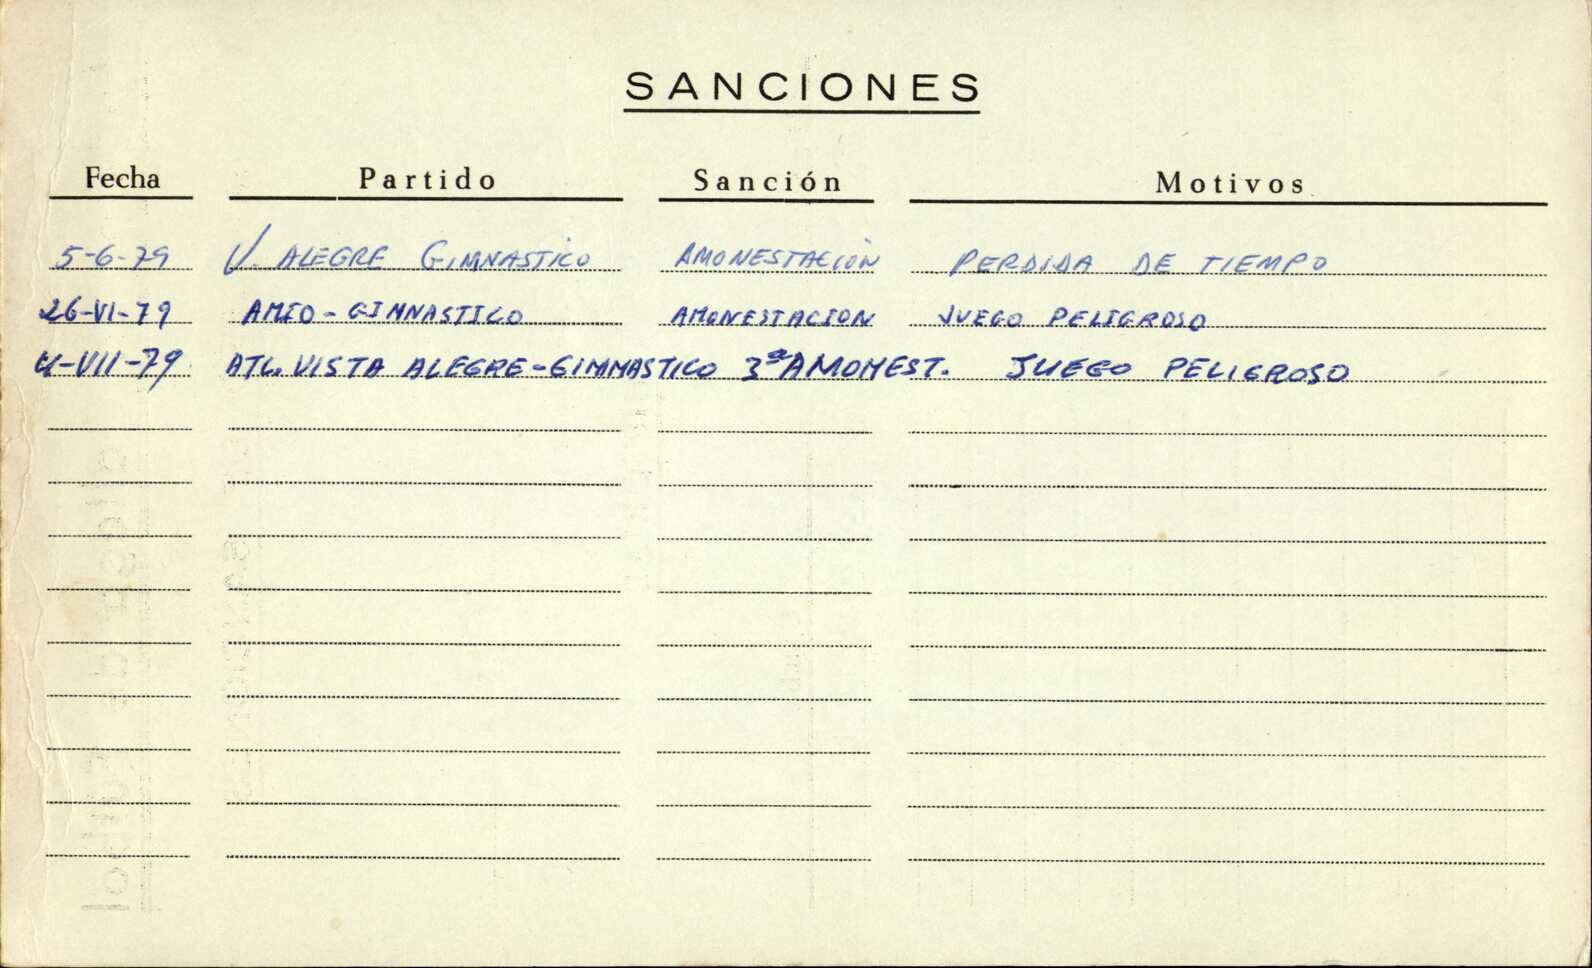 SANCIONES
Fecha Partido Sanción Motivos
5-6-79 V. ALEGRE GIMNASTICO AMONESTACIÓN PERDIDA DE TIEMPO
26-VI-79 AMIO-GIMNASTICO AMONESTACION JUEGO PELIGROSO
4-VII-79 ATL. VISTA ALEGRE-GIMNASTICO 3ª AMONEST. JUEGO PELIGROSO